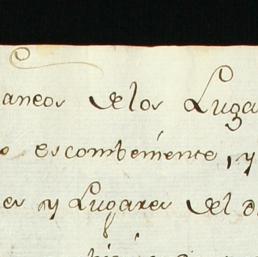 aneos de los Luga
o es combeniente, y
es y Lugares del d